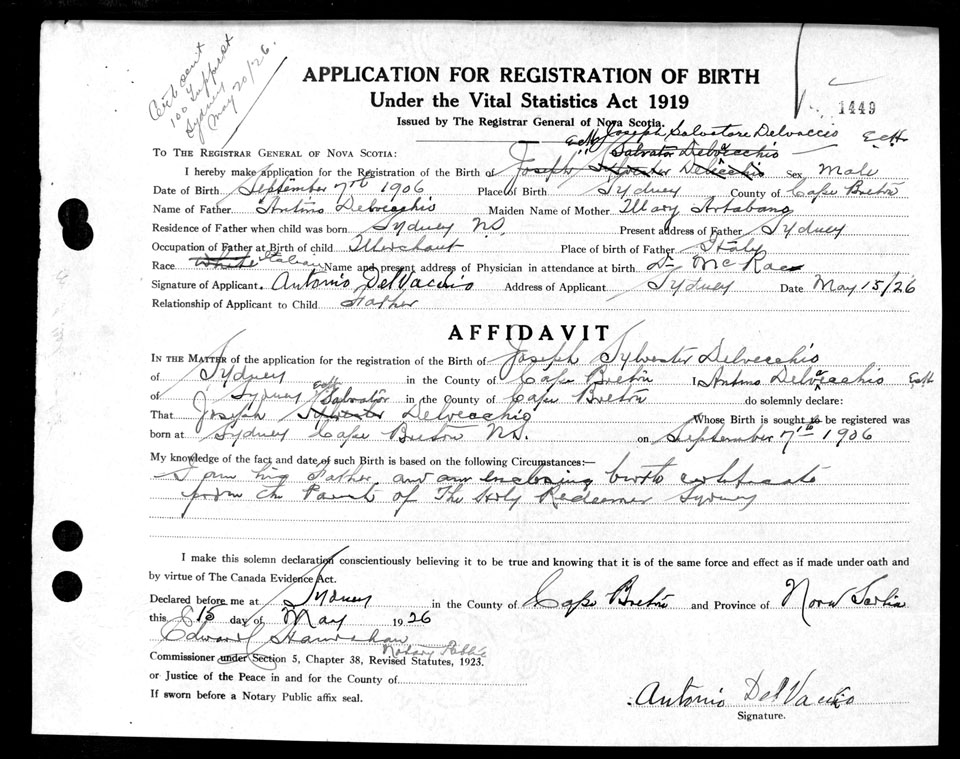 Cert sent
100 Tupper st
Sydney
May 20/26.
APPLICATION FOR REGISTRATION OF BIRTH
Under the Vital Statistics Act 1919
1449
Issued by The Registrar General of Nova Scotia.
Joseph Salvatore Delvaccio
E.C.H.
Salvator Delvacchio
TO THE REGISTRAR GENERAL OF NOVA SCOTIA:
I hereby make application for the Registration of the Birth of Joseph Sylvester Delvecchio Sex Male
Date of Birth September 7th 1906 Place of Birth Sydney County of Cape Breton
Name of Father Antino Delvecchio Maiden Name of Mother Mary Artabano
Residence of Father when child was born Sydney N.S. Present address of Father Sydney
Occupation of Father at Birth of child Merchant Place of birth of Father Italy
Race White Italian Name and present address of Physician in attendance at birth Dr McRae
Signature of Applicant. Antonio DelVacchio Address of Applicant Sydney Date May 15/26
Relationship of Applicant to Child Father
AFFIDAVIT
IN THE MATTER of the application for the registration of the Birth of Joseph Sylvester Delvecchio
of Sydney in the County of Cape Breton I Antino Delvacchio ECH
of Sydney in the County of Cape Breton do solemnly declare:
ECH Salvator
That Joseph Sylvester Delvecchio Whose Birth is sought to be registered was
born at Sydney Cape Breton NS. on September 7th 1906
My knowledge of the fact and date of such Birth is based on the following Circumstances:—
I am his Father and am enclosing birth certificate
from the Parish of The Holy Redeemer Sydney
I make this solemn declaration conscientiously believing it to be true and knowing that it is of the same force and effect as if made under oath and
by virtue of The Canada Evidence Act.
Declared before me at Sydney in the County of Cape Breton and Province of Nova Scotia
this 15 day of May 1926
Edward C Hanrahan
Notary Public
Commissioner under Section 5, Chapter 38, Revised Statutes, 1923.
or Justice of the Peace in and for the County of
If sworn before a Notary Public affix seal.
Antonio DelVaccio
Signature.